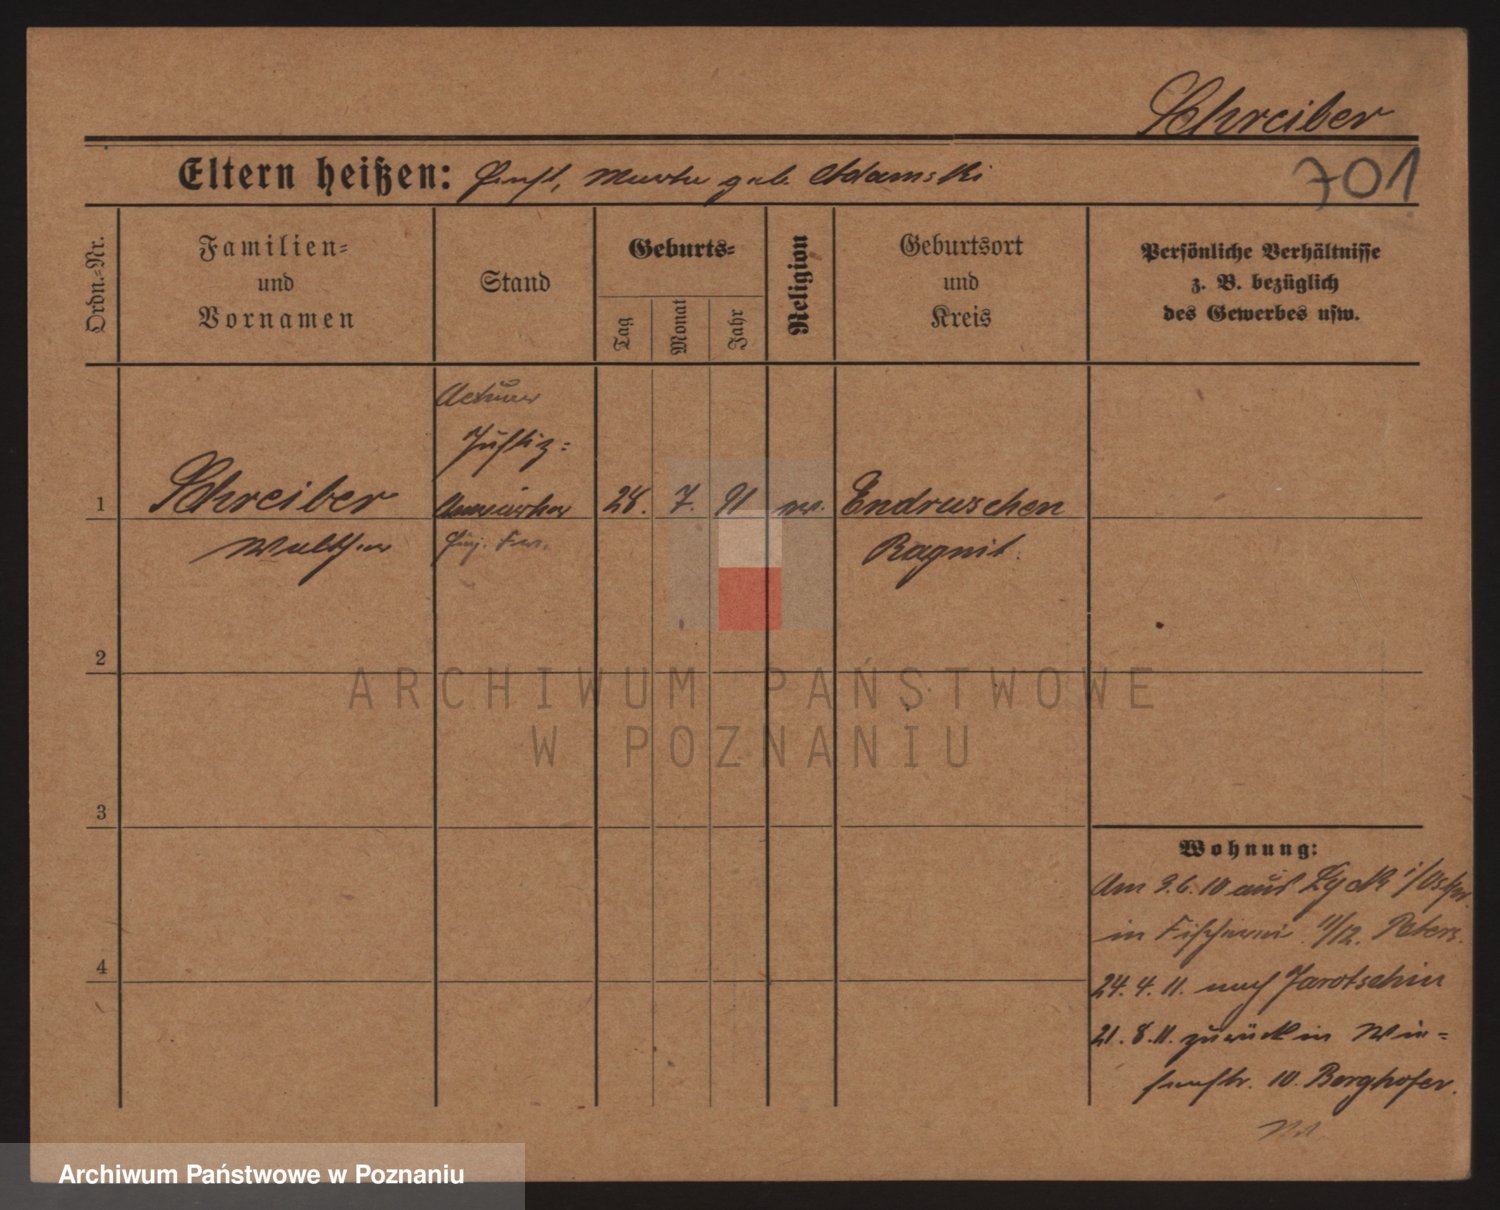 Schreiber
Eltern heißen: Ernst, Martha geb. Adamski
701
Ordn.-Nr.
Familien-
und
Vornamen
Stand
Geburts-
Tag
Monat
Jahr
Religion
Geburtsort
und
Kreis
Persönliche Verhältnisse
z. B. bezüglich
des Gewerbes usw.
Actuar
Justiz-
1 Schreiber Anwärter 28. 7. 91 ev. Endruschen
Walther Ragnit.
2
3
4
Wohnung:
Am 9.6.10 aus Lyck i/Ostpr.
in Fischerei 11/12. Peters.
24. 4. 11. nach Jarotschin
21. 8. 11. zurück in
10. Berghofer.
ARCHIWUM PAŃSTWOWE
W POZNANIU
Archiwum Państwowe w Poznaniu